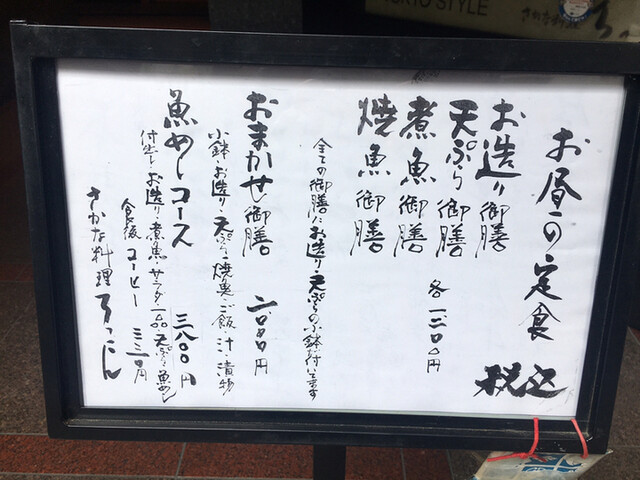 お昼の定食
税込
お造り御膳
天ぷら御膳
煮魚御膳
焼魚御膳
各一三〇〇円
全ての御膳にお造り・天ぷらの小鉢が付いてます
おまかせ御膳 二〇〇〇円
小鉢・お造り・天ぷら・焼魚・ご飯・汁・漬物
魚めしコース 三八〇〇円
付出し・お造り・煮魚・サラダ・一品・天ぷら・魚めし
食後 コーヒー 三三〇円
さかな料理 ろっこん
STYLE
さかな料理